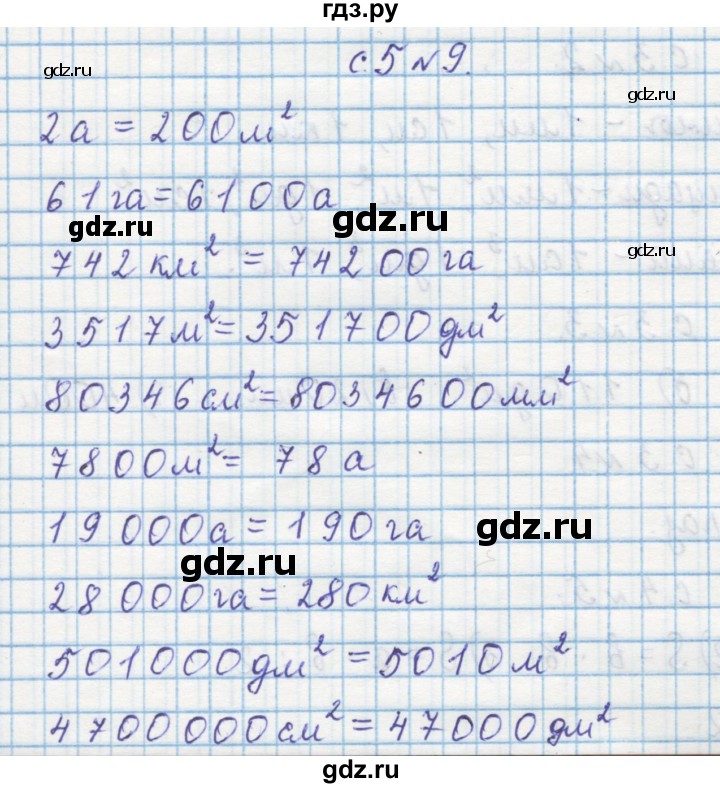 гдз.ру
gdz.ru
с.5 №9.
gdz.ru
2а = 200м²
61га = 6100а
gdz.ru
gdz.ru
742км² = 74200га
gdz.ru
3517м² = 351700дм²
80346см² = 8034600мм²
7800м² = 78а
19000а = 190га
gdz.ru
gdz.ru
28000га = 280км²
501000дм² = 5010м²
4700000см² = 47000дм²
gdz.ru